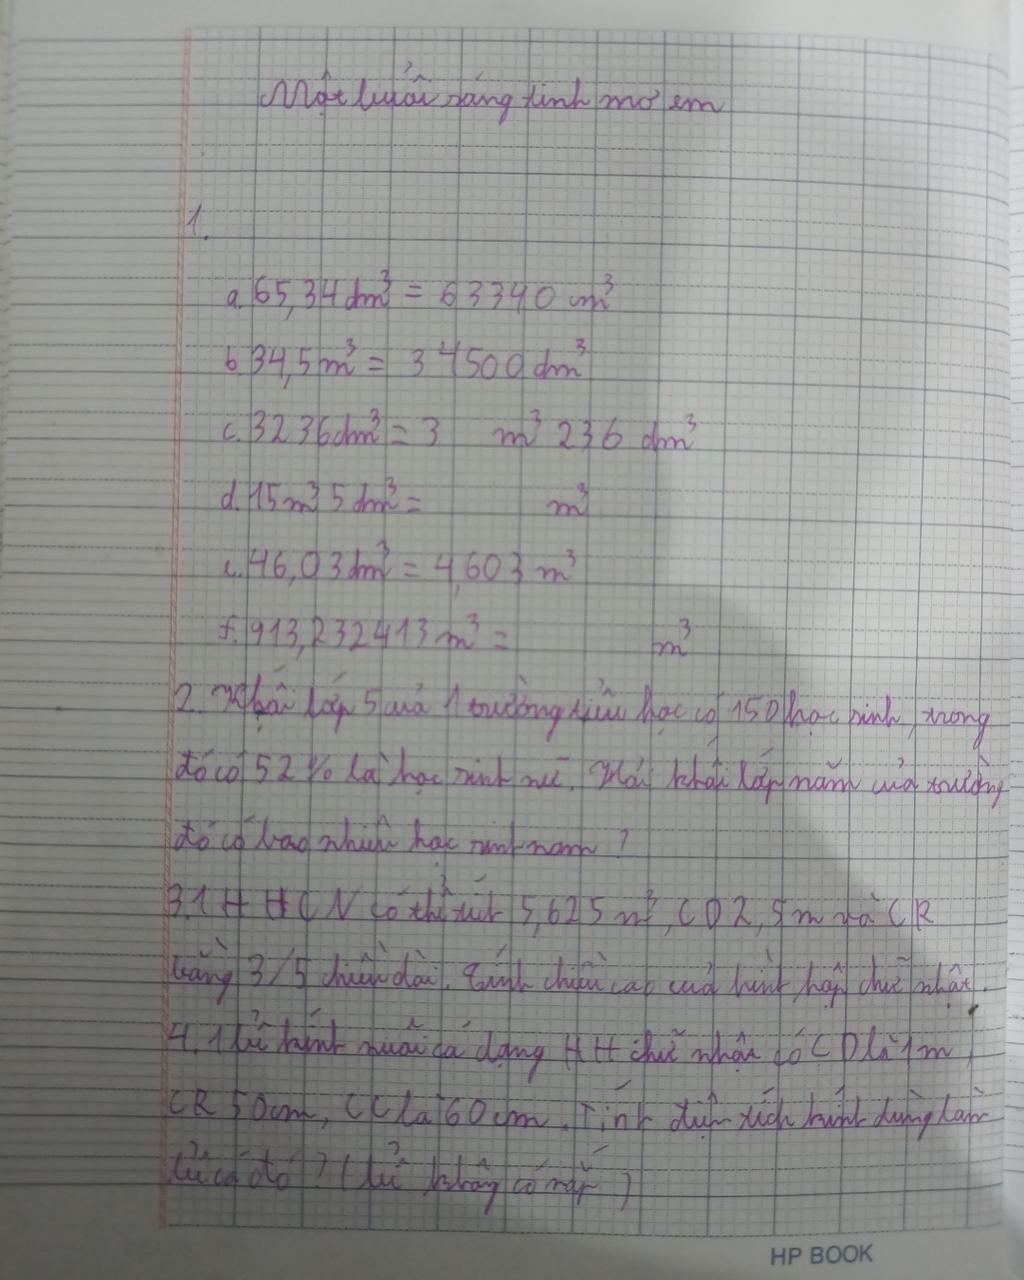 Một buổi sáng tinh mơ em
1.
a. 65,34 dm³ = 63340 cm³
b. 34,5 m³ = 34500 dm³
c. 3236 dm³ = 3 m³ 236 dm³
d. 15 m³ 5 dm³ = m³
e. 46,03 dm³ = 4,603 m³
f. 913,232413 m³ = m³
2. Khối lớp 5 của 1 trường tiểu học có 150 học sinh, trong
đó có 52% là học sinh nữ. Hỏi khối lớp năm của trường
đó có bao nhiêu học sinh nam?
3. 1 HHCN có thể tích 5,625 m³, CD 2,5 m và CR
bằng 3/5 chiều dài. Tính chiều cao của hình hộp chữ nhật.
4. 1 bể kính nuôi cá dạng HH chữ nhật có CD là 1m,
CR 50cm, CC là 60cm. Tính diện tích kính dùng làm
bể cá đó? (bể không có nắp)
HP BOOK